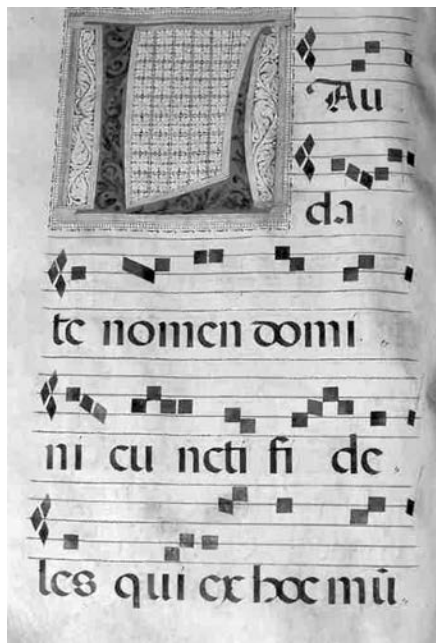 LAu
da
te nomen domi
ni cu ncti fi de
les qui ex hoc mū